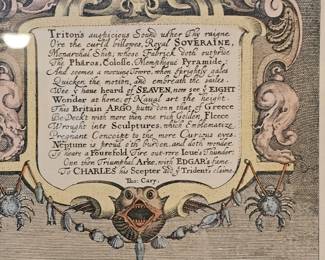 Triton's auspicious Sound usher Thy raigne
O're the curld billowes, Royal SOVERAINE,
Monarchal Ship, whose Fabrick doth outbraue
The Pharos, Colosse, Memphique Pyramide,
And seemes a moving Towre, when sprightly gales
Quicken the motion, and embreath the sailes.
Wee haue heard of SEAVEN, now see yͤ EIGHT
Wonder at home; of Naual art the height.
This Britain ARGO putts down that of Greece
Be Deck't with more then one rich Golden Fleece
Wrought into Sculptures, which Emblematize
Pregnant Conceipt to the more Curious eyes.
Neptune is proud oth burden, and doth wonder
To heare a Fourefold Fire out-rore Iove's Thunder:
One then Triumphal Arke, with EDGARs fame
To CHARLES his Scepter add yͤ Trident's claime.
Tho: Cary.